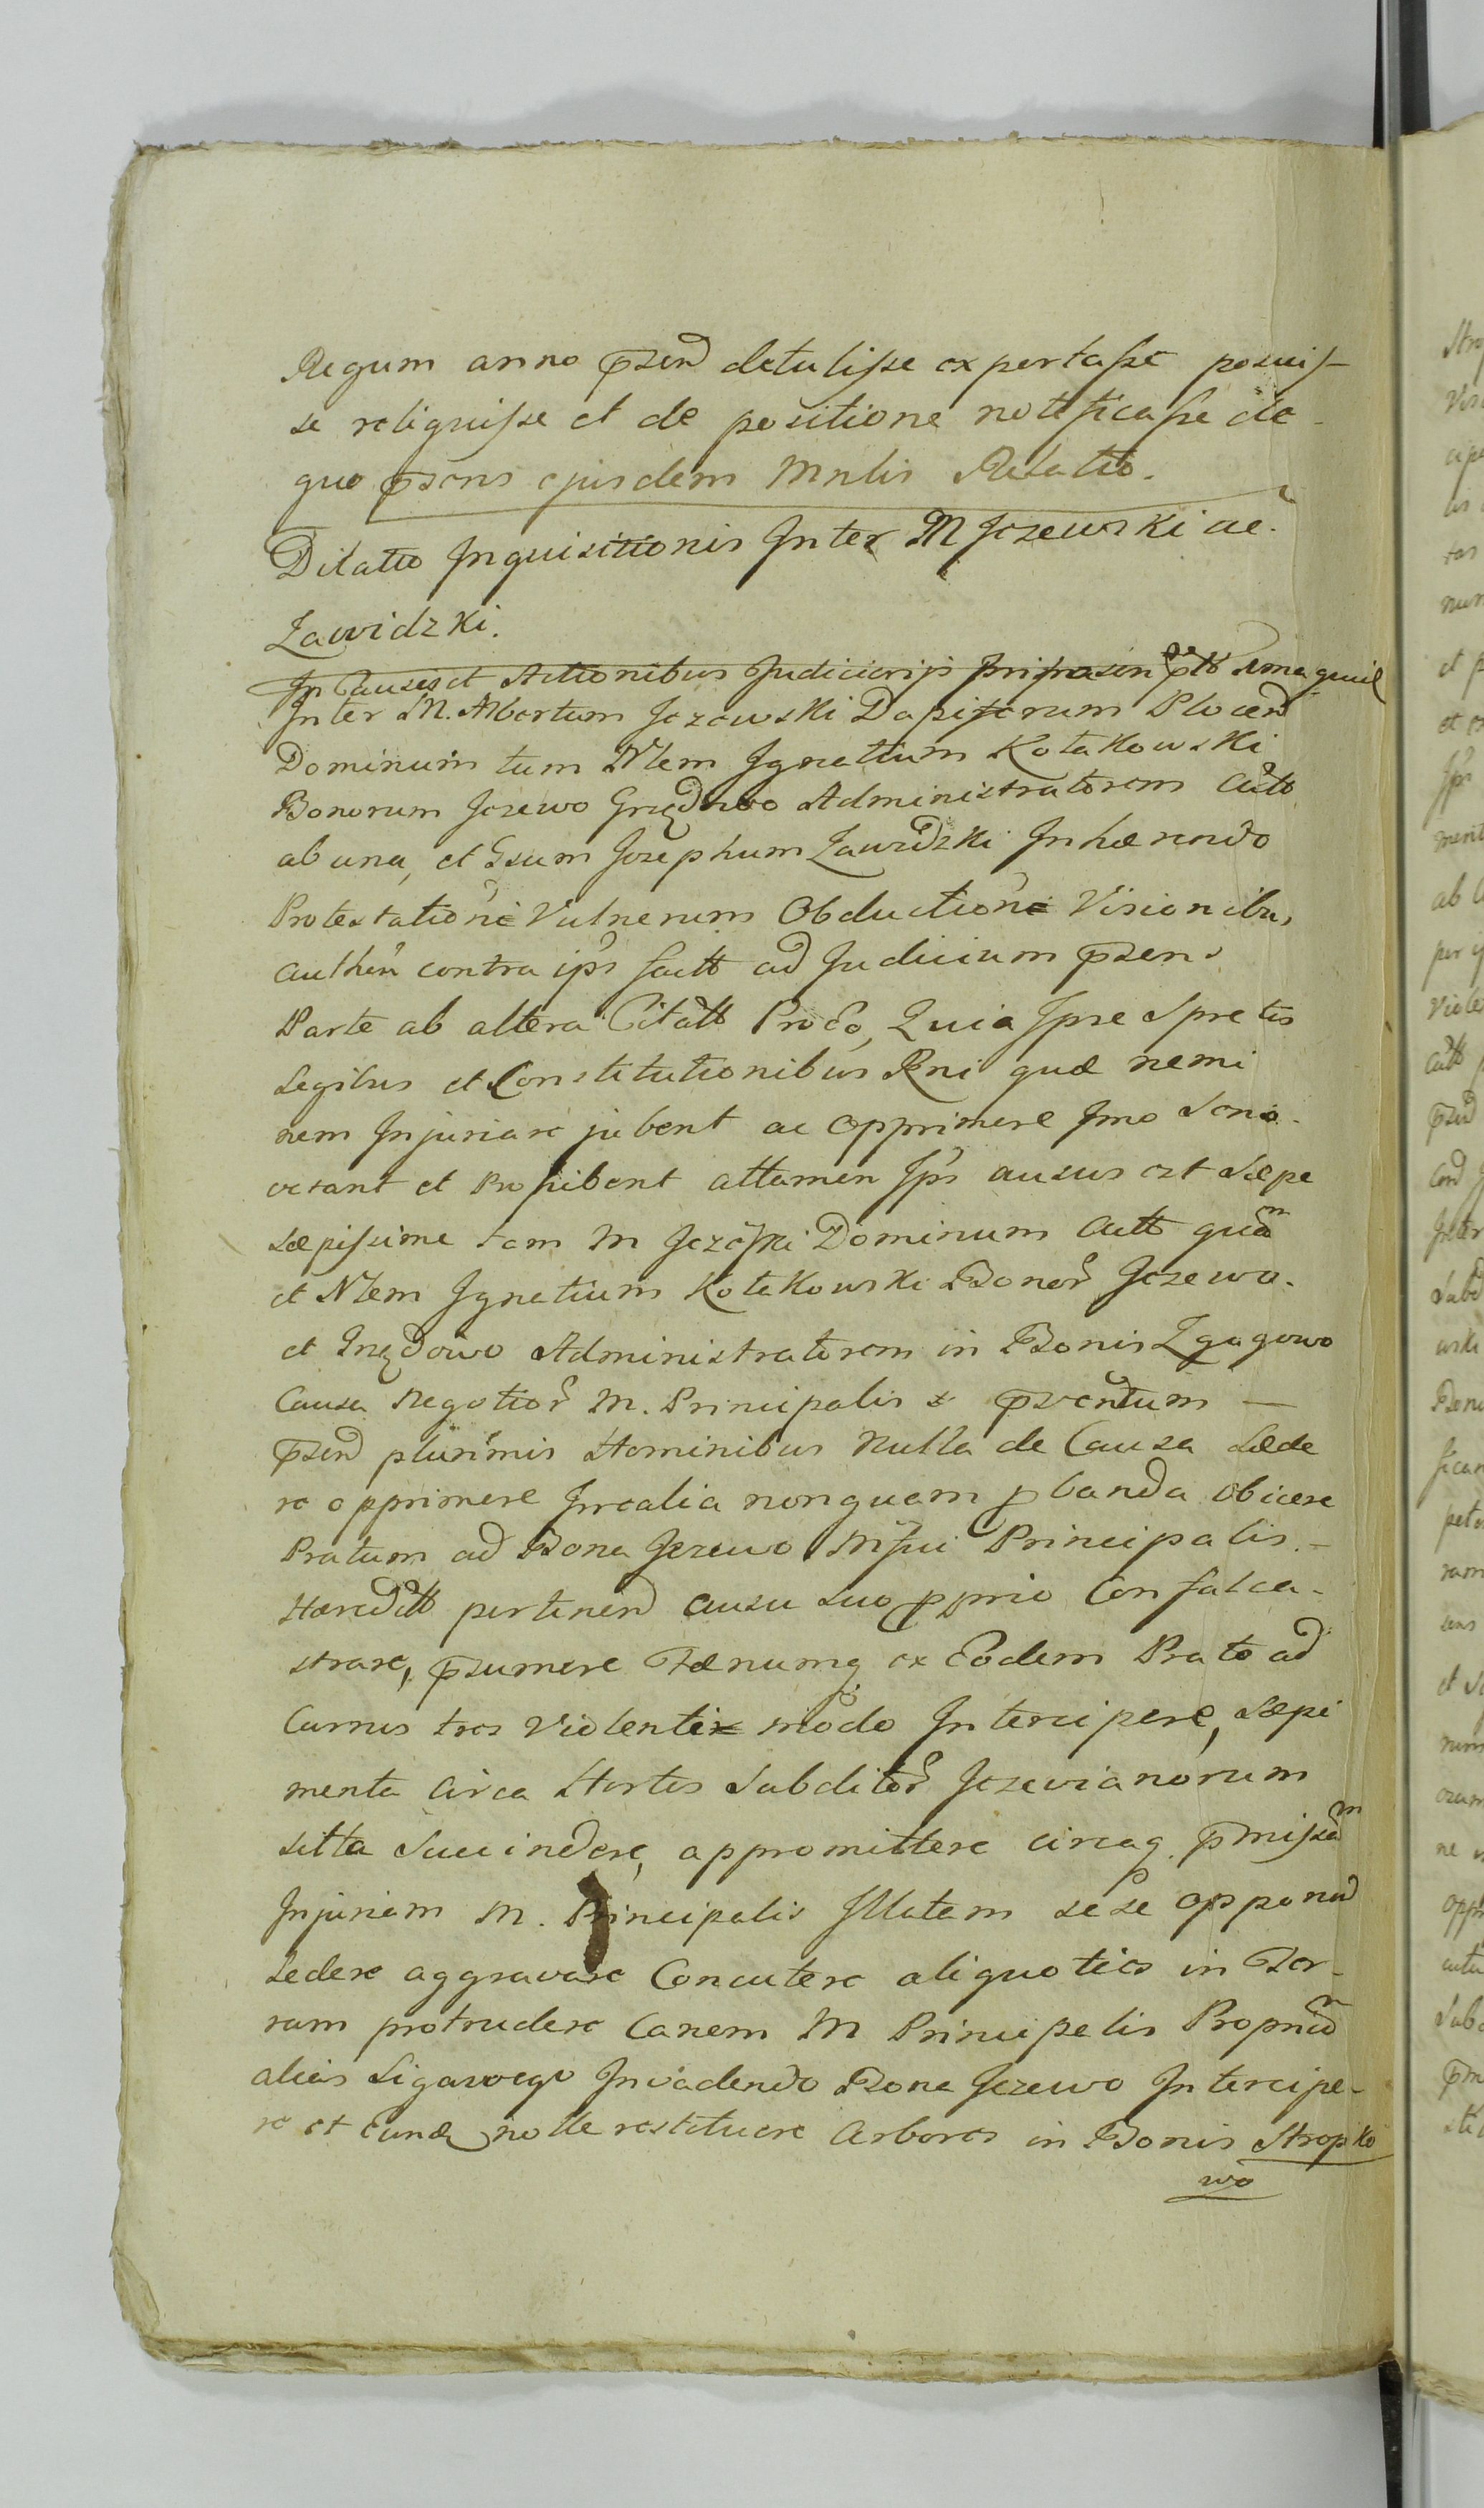 Regum anno p̄send detulisse exportasse posuis-
se reliquisse et de positione notificasse de
quo p̄sens ejusdem Mnlis Relatio.
Dilatio Inquisitionis Inter M Jezewski ac
Zawidzki.
In Causis et Actionibus Judiciarijs
Inter M. Albertum Jezewski Dapiferum Plocen
Dominum tum Nlem Ignatium Kotakowski
Bonorum Jezewo Grzędowo Administratorem Actt
ab una, et Gsum Josephum Zawidzki Inhærendo
Protestationi Vulnerum Obductione Visionibus
authen contra ips factt ad Judicium p̄sens
Parte ab altera Citatt Pro Eo, Quia Ipse Spretis
Legibus et Constitutionibus Rni quæ nemi
nem Injuriare jubent ac opprimere Imo
vetant et Prohibent attamen Ips ausus est Sæpe
sæpissime tam M Jezewski Dominum Actt quam
et Nlem Ignatium Kotakowski Bonor Jezewo
et Grzędowo Administratorem in Bonis Zgagowo
Causa Negotior M. Principalis p̄ventum —
p̄send plurimis Hominibus Nulla de Causa Læde
re opprimere Irrealia nonquam p banda obicere
Pratum ad Bona Jezewo Principalis.-
Hæreditt pertinend ausu suo pprio Confalca-
strare, p̄sumere Fænumq ex Eodem Prato ad
Currus tres Violentie modo Intercipere, Sæpi
menta circa Hortos Subditor Jezevianorum
sitta Succindere, appromittere circaq p̄missam
Injuriam M. Principalis Illatam sese opponend
Ledere aggravare Concutere aliquoties in Ter-
ram protrudere Canem M Principalis Proprium
alias Ligawego Invadendo Bona Jezewo Intercipe-
re et Eund nolle restituere Arbores in Bonis Stropko
wo